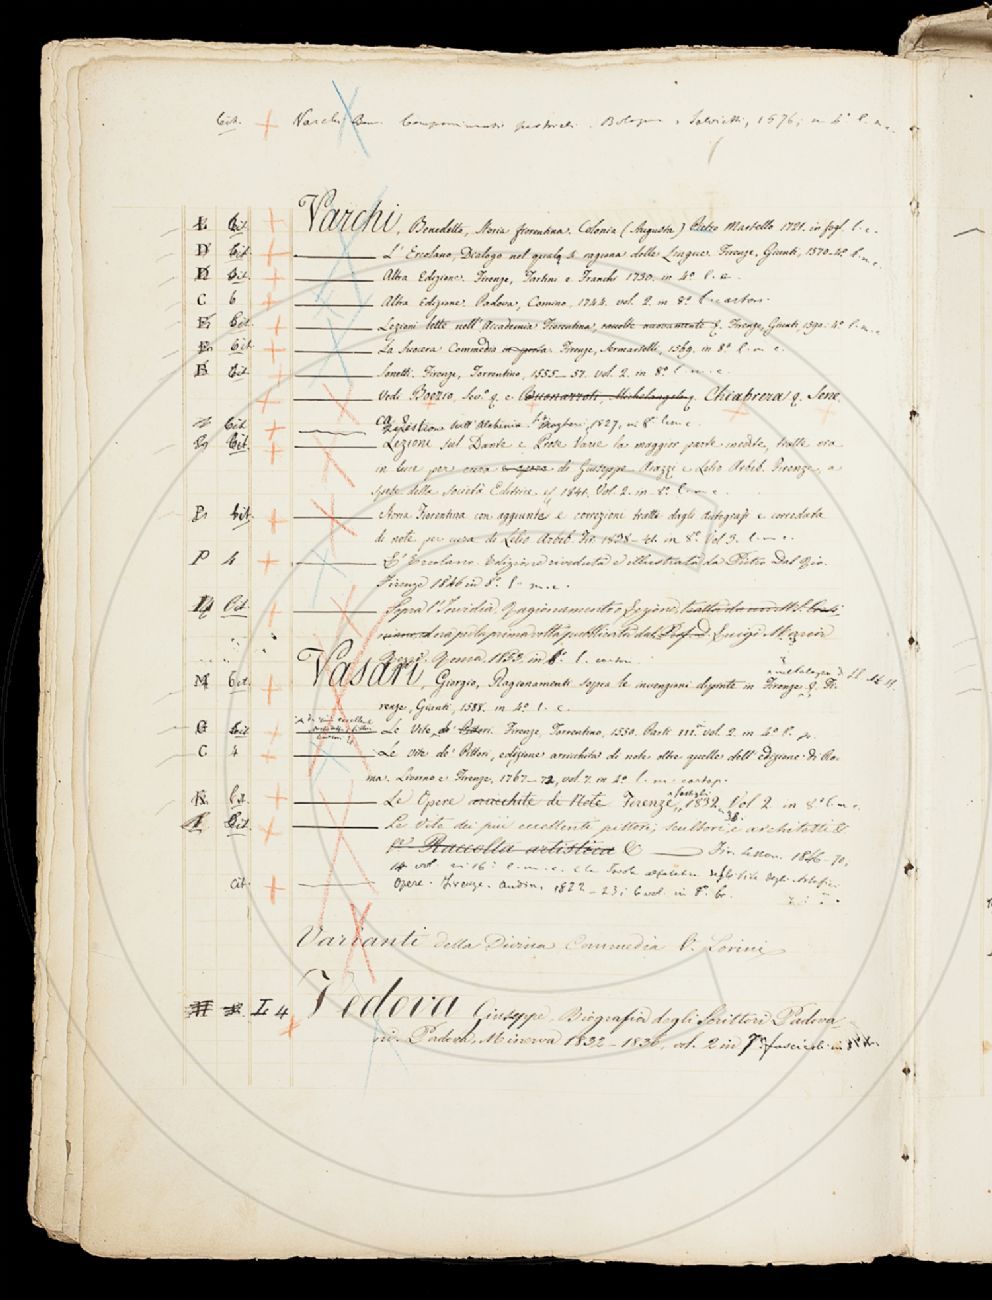 Cit. Varchi Ben. Componimenti pastorali. Bologna, 1576; in 4º l. m.
L Cit. Varchi, Benedetto, Storia fiorentina. Colonia (Augusta) Pietro Martello 1721. in fogl. l. c.
D Cit. L'Ercolano, Dialogo nel quale si ragiona delle Lingue. Firenze, Giunti, 1570. 4º l. m. c.
D Cit. Altra Edizione. Firenze, Tartini e Franchi 1730. in 4º l. c.
C 6 Altra Edizione. Padova, Comino, 1744. vol. 2. in 8º l. carton.
E Cit. Lezioni lette nell'Accademia Fiorentina, raccolte nuovamente &. Firenze, Giunti, 1590. 4º l. m. c.
E Cit. La Suocera Commedia in prosa. Firenze, Sermartelli, 1569. in 8º l. m. c.
B Cit. Sonetti. Firenze, Torrentino, 1555-57. vol. 2. in 8º l. m. c.
Vedi Boezio, Sev.º q. e Buonarroti, Michelangelo q. Chiabrera q. Sene
Cit. Questione sull'Alchimia. Fir. Magheri, 1827, in 8º l. m. c.
Cit. Lezione sul Dante e Prose Varie la maggior parte inedite, tratte ora
in luce per cura e opera di Giuseppe Aiazzi e Lelio Arbib. Firenze, a
spese della Società Editrice 1841. Vol. 2. in 8º l. m. c.
Cit. Storia Fiorentina con aggiunte e correzioni tratte dagli autografi e corredata
di note per cura di Lelio Arbib. Fir. 1838-41. in 8º Vol. 3. l. m. c.
P 4 L'Ercolano. Edizione riveduta e illustrata da Pietro Dal Rio.
Firenze 1846 in 8º l. m. c.
Cit. Sopra l'Invidia. Ragionamento o Lezione, tratta da un M.S.
ora per la prima volta pubblicata dal Luigi M.
Roma 1853. in 8º l.
M Cit. Vasari, Giorgio, Ragionamenti sopra le invenzioni dipinte in Firenze &. Fi-
renze, Giunti, 1588. in 4º l. c.
G Cit. Le Vite, de' Pittori. Firenze, Torrentino, 1550. Parti III. vol. 2. in 4º
C 4 Le vite de' Pittori, edizione arricchita di note oltre quelle dell'edizione di Ro-
ma. Livorno e Firenze, 1767-72, vol. 7. in 4º l. m. cartop.
K Cit. Le Opere arricchite di Note Firenze, 1832 Vol 2 in 8º l. m. c.
Cit. Le Vite dei più eccellenti pittori, scultori, e architetti &
Raccolta artistica & Fir. Le Mon. 1846-70,
14 vol. in 16º l. m. c. e la Tavola
cit. Opere. Firenze. Audin. 1822-23; 6 vol. in 8º. br.
Varianti della Divina Commedia V. Lorini
L 4 Vedova Giuseppe. Biografia degli Scrittori Padova-
ni. Padova, Minerva 1832-1836, vol. 2 in fascicoli in 8º